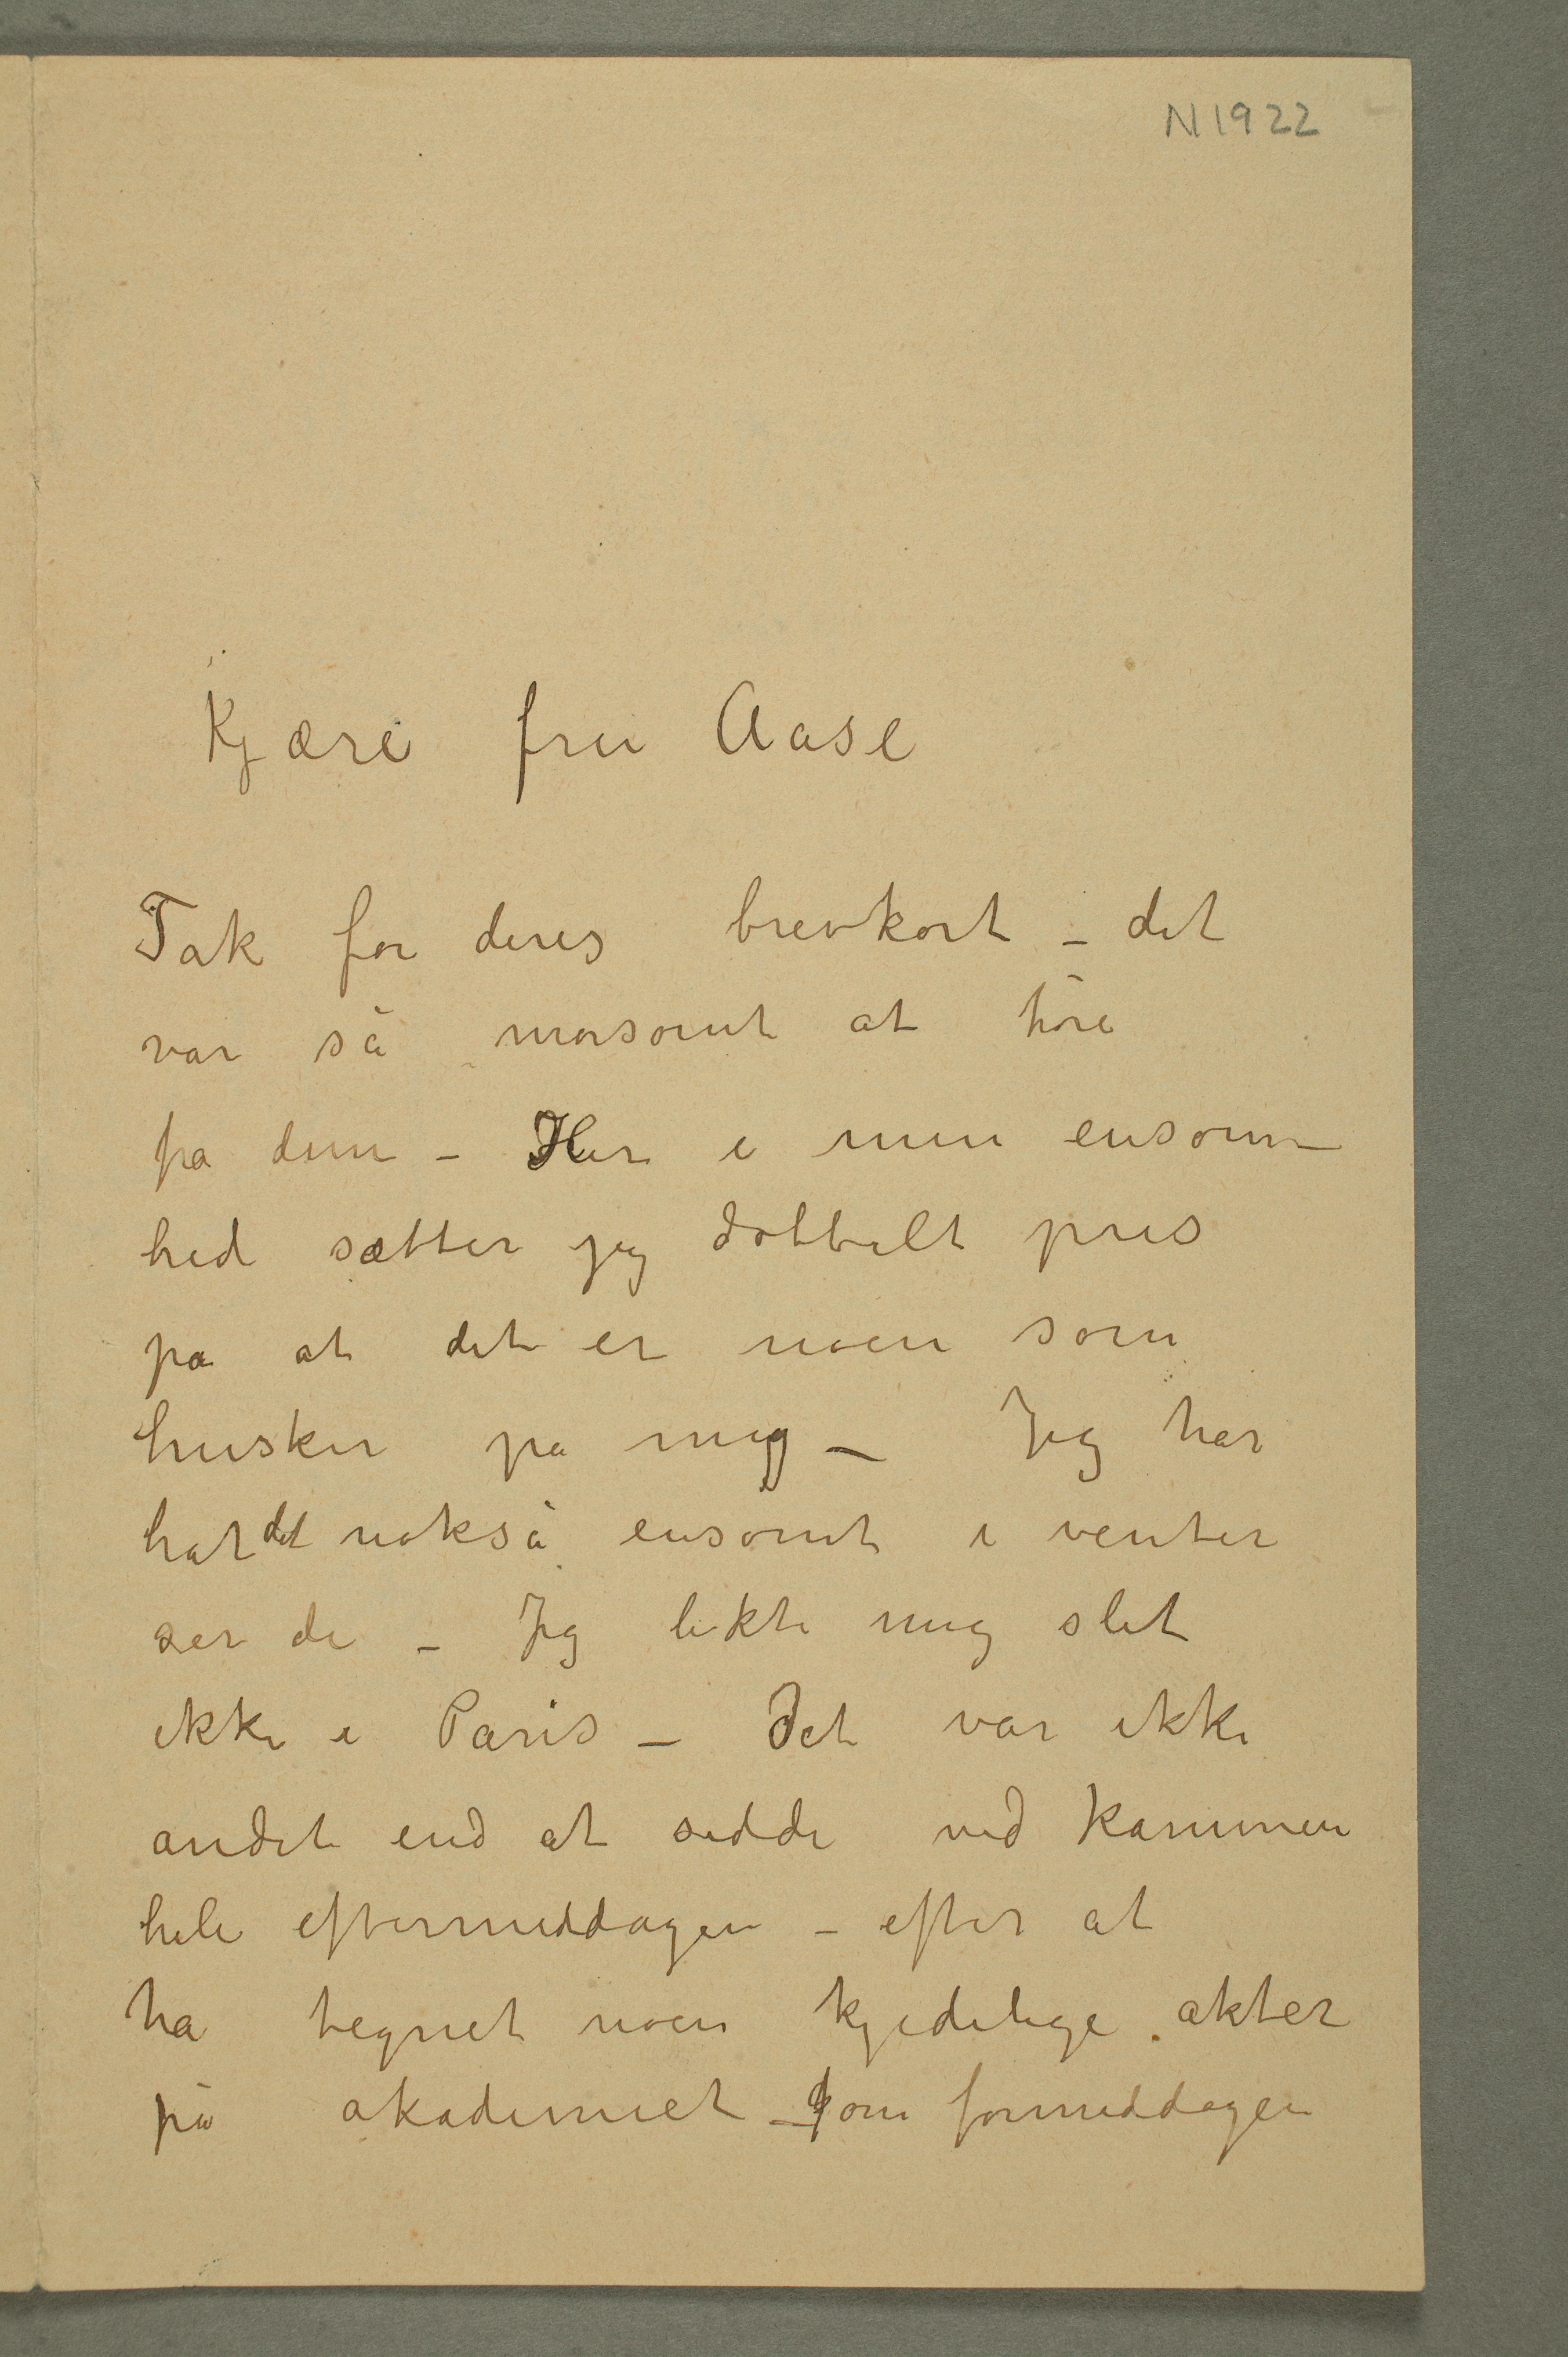 N1922
Kjære fru Aase
Tak for deres brevkort – det
var så morsomt at høre
fra dem – Her i min ensom–
hed sætter jeg dobbelt pris
pa at det er noen som
husker på mig – Jeg har
hat det nokså ensomt i vinter
ser de – Jeg likte mig slet
ikke i Paris – Det var ikke
andet end at sidde ved kaminen
hele eftermiddagen – efter at
ha tegnet noen kjedelige akter
på akademiet – om formiddagen